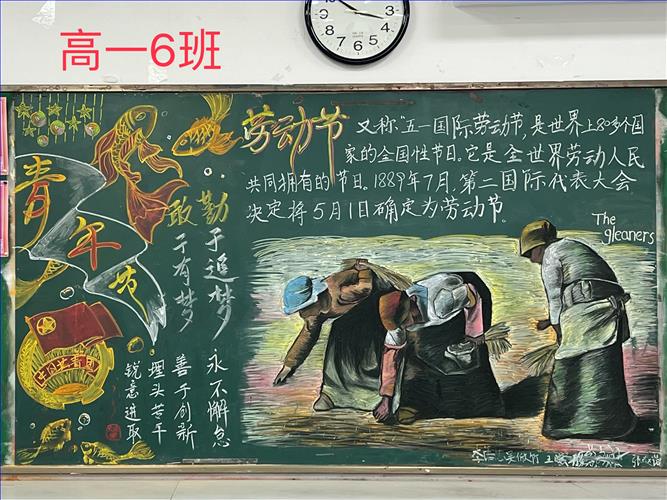 高一6班
劳动节
又称"五一国际劳动节,是世界上80多个国
家的全国性节日。它是全世界劳动人民
共同拥有的节日。1889年7月,第二国际代表大会
决定将5月1日确定为劳动节。
The
gleaners
青年节
勤于追梦
敢于有梦
永不懈怠
善于创新
埋头苦干
锐意进取